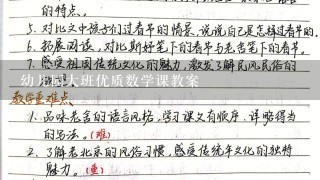 的特点。
5.对比文中孩子们过春节的情景,说说自己是怎样过春节的。
6.拓展阅读,对比斯好笔下的春节与老舍笔下的春节。
7.感受祖国传统文化的魅力,激发了解民风民俗的
幼儿园大班优质数学课教案
教学重难点
1.品味老舍的语言风格,学习课文有顺序、详略得当
的写法。(难)
2.了解老北京的风俗习惯,感受传统年文化的独特
魅力。(重)